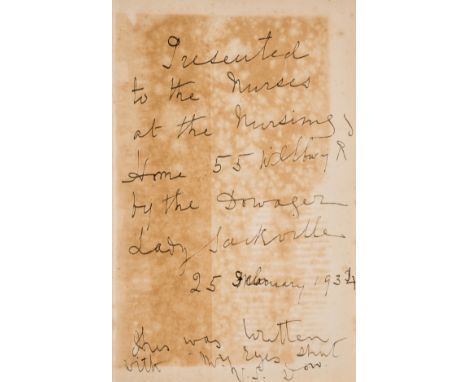 Presented
to the Nurses
at the Nursing
Home 55 R
by the Dowager
Lady Sackville
25 February 1934
This was written
with My Eyes shut
V.S. Dow.